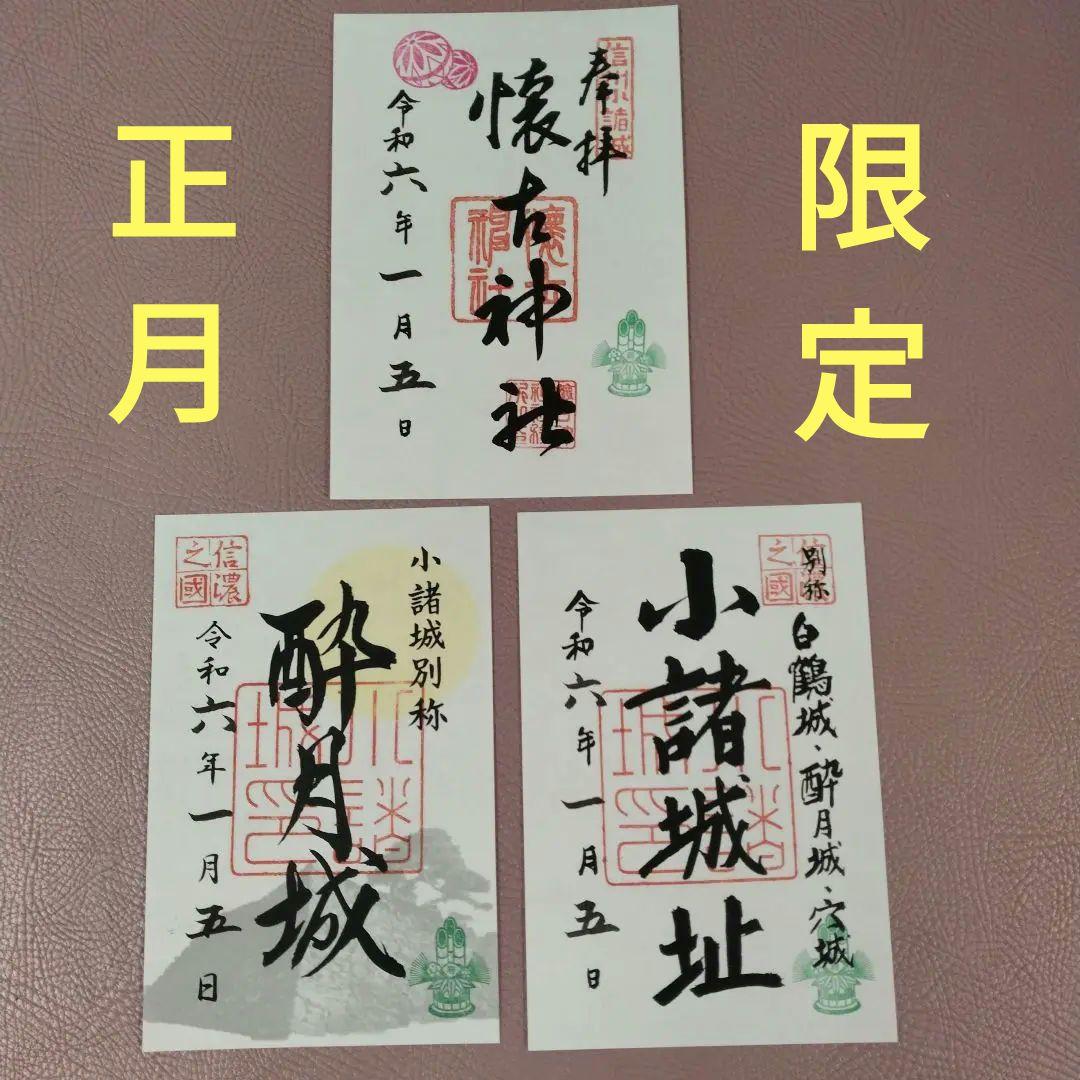 正月
限定
奉拝
信州小諸城
懐古神社
懐古神社
令和六年一月五日
小諸城別称
酔月城
信濃之國
小諸城印
令和六年一月五日
別称 白鶴城・酔月城・穴城
小諸城址
信濃之國
小諸城印
令和六年一月五日